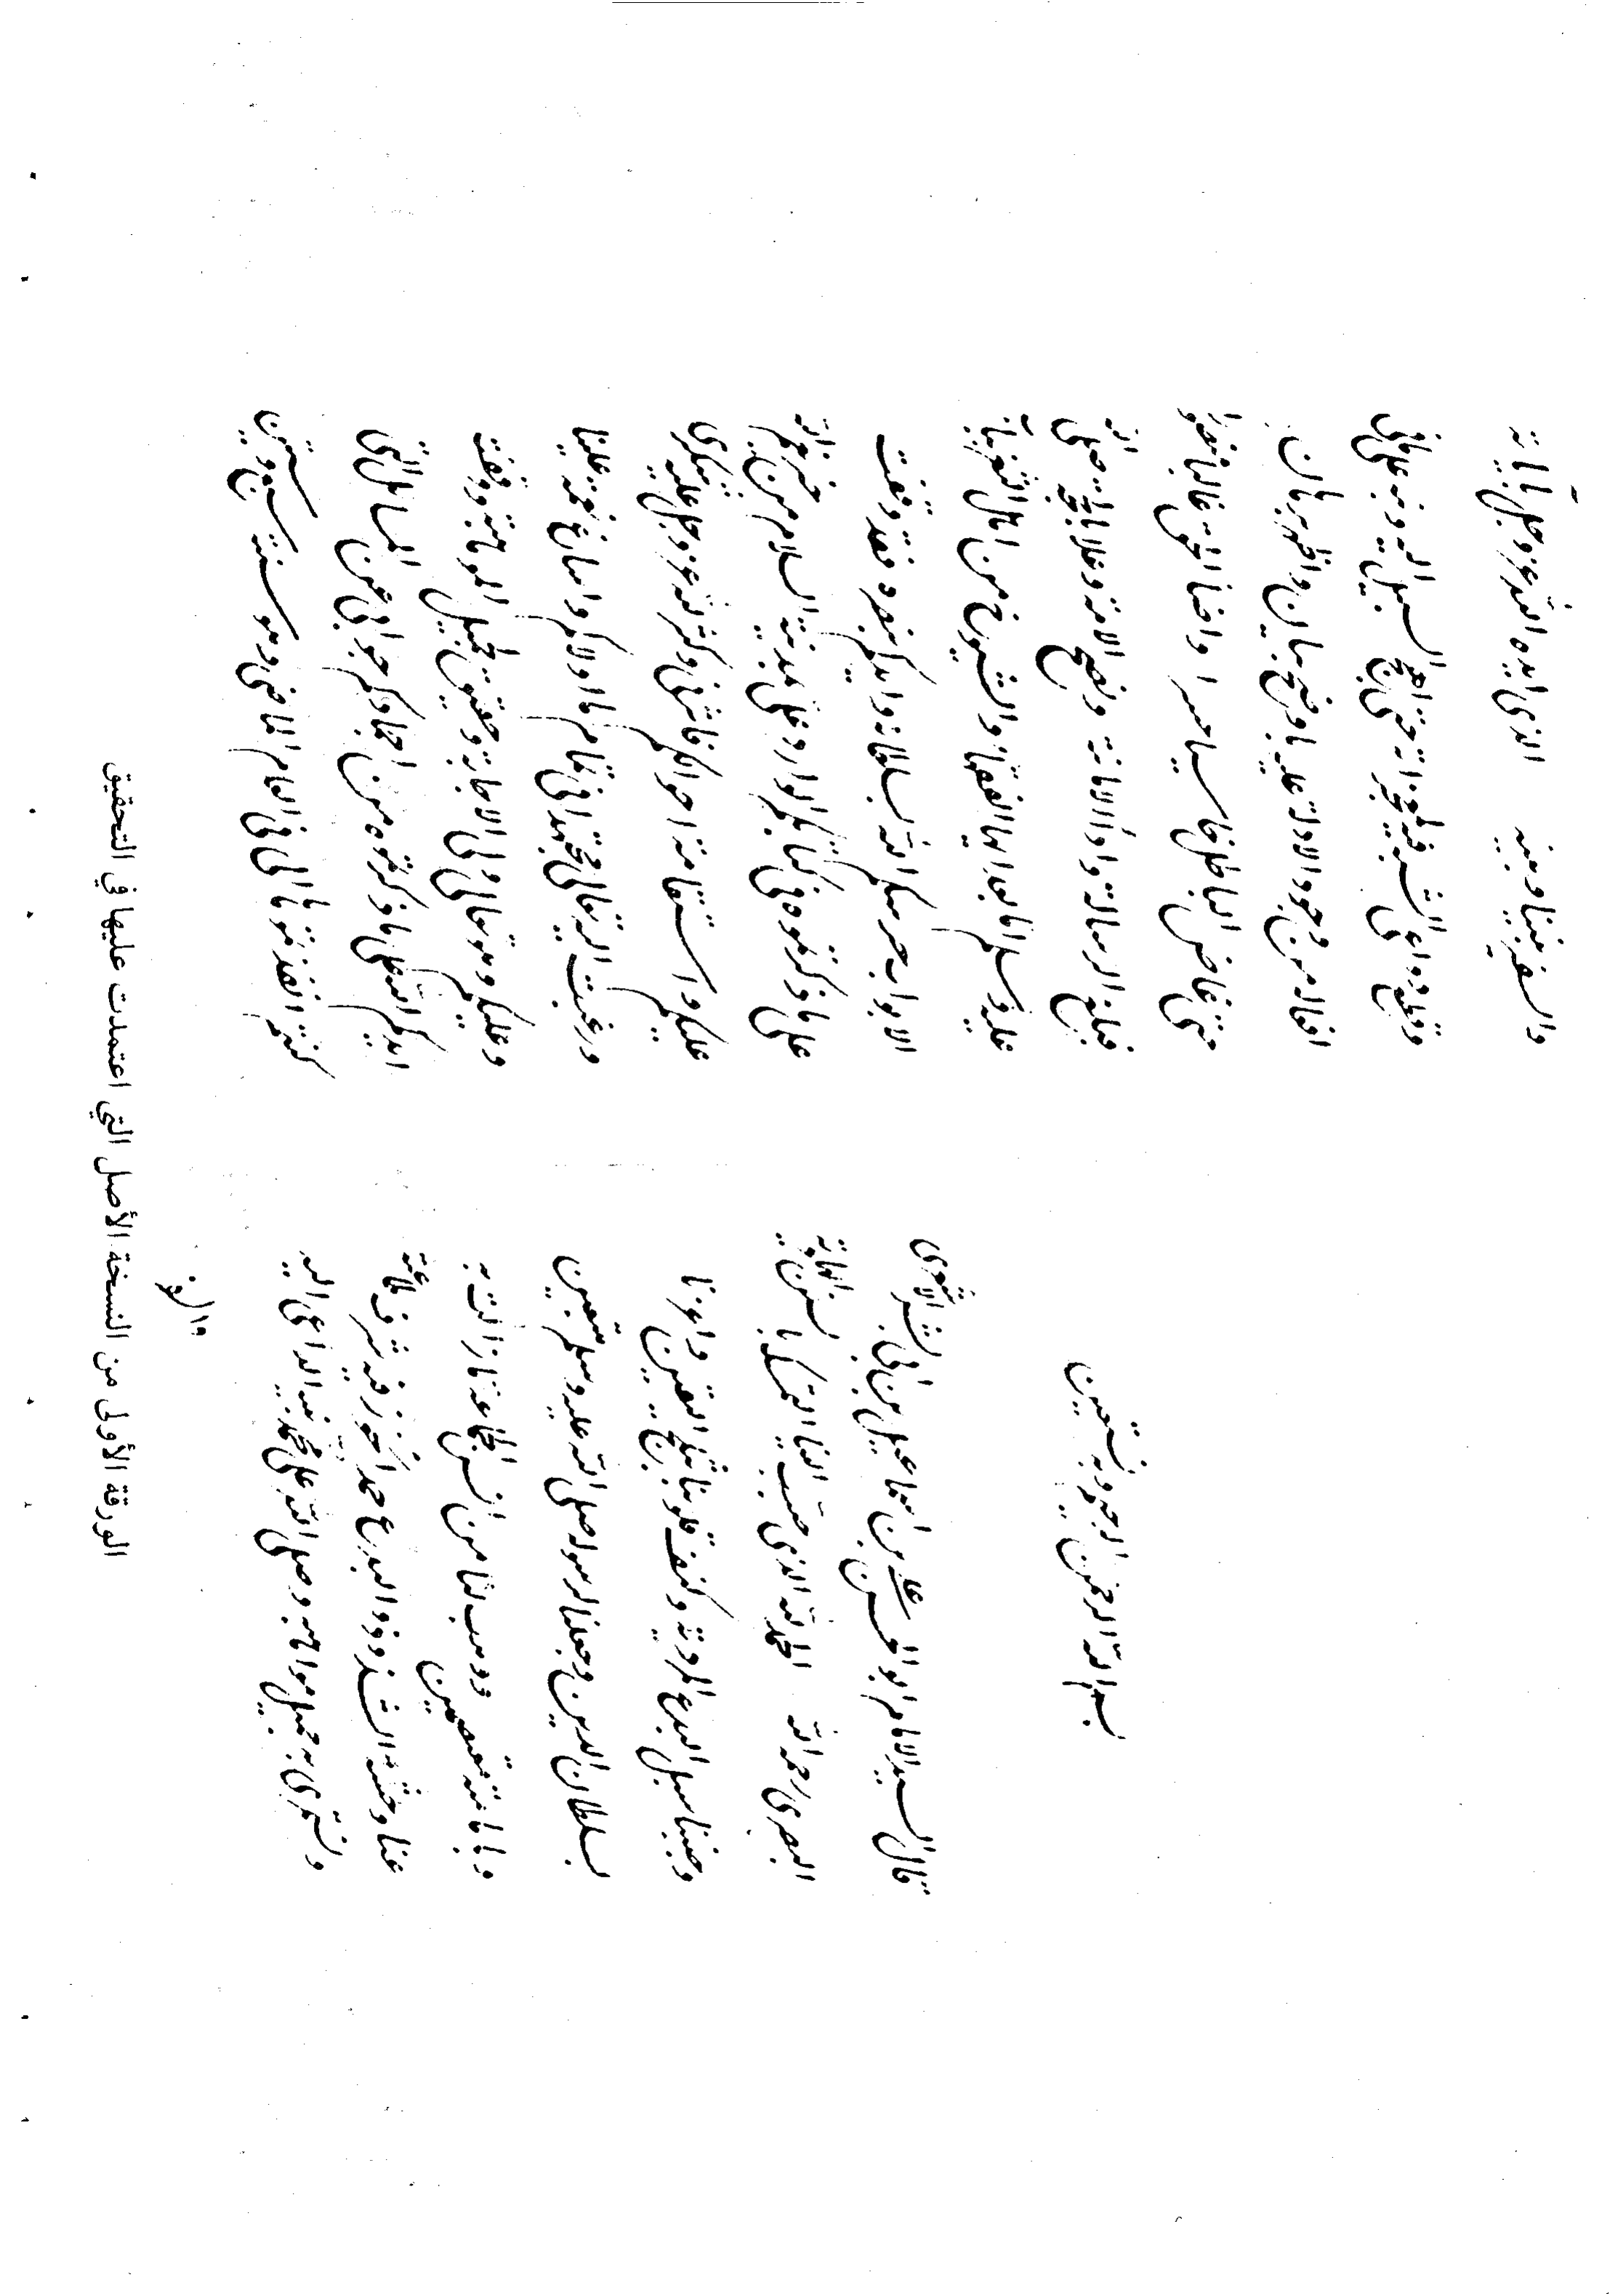 بسم الله الرحمن الرحيم وبه نستعين
قال السيد الامام ابو الحسن علي بن اسماعيل بن ابي بشر الاشعري
البصري رحمه الله الحمد لله الذي حبب الينا التمسك بالسنن الهادية
وجنبنا سبل البدع المردية قلوبنا بثلج اليقين واعزنا
بسلطان الدين وجعلنا لرسوله صلى الله عليه وسلم متبعين
معتصمين ووهب لنا من انس الجماعة ما زالت به
عنا وحشة الشذوذ والبدع حمد في شرف طاعته
به جميل مواهبه وصلى الله على محمد نبيه الداعي اليه
والسفير بيننا وبينه الذي ايده الله عز وجل بآياته
وقطع دواعي الشبه فيه بمعجزاته حتى نهج السبيل اليه ونبه على ما في
افعاله من وجوه الادلة عليه باوضح بيان واظهر برهان
حتى غاض الباطل خاسيا حسيرا واضا الحق عاليا
فبلغ الرسالة وادا الامانة ونصح الامة صلى الله
عليه وسلم اما بعد ايها الفقها والشيوخ من اهل الثغر بباب
الابواب حرسكم الله بسلطانه وايدكم بنصره فقد وقفت
على ما ذكرتموه في كتابكم الوارد علي بمدينة السلام من نعم الله
عليكم واستقامة احوالكم وكثر لله عز وجل عليه شكري
ورغبت اليه تعالى مجتهدا في تمام ما اولاكم واسباغ نعمه علينا
وعليكم وهو تعالى ولي الاجابة وحقيق بجميل الموهبة ووقفت
ايدكم الله على ما ذكرتموه من احمادكم جوابي عن المسائل التي
كنتم انفذتموها الي في العام الماضي وهو سنة سبع وستين
الورقة الأولى من النسخة الأصل التي اعتمدت عليها في التحقيق